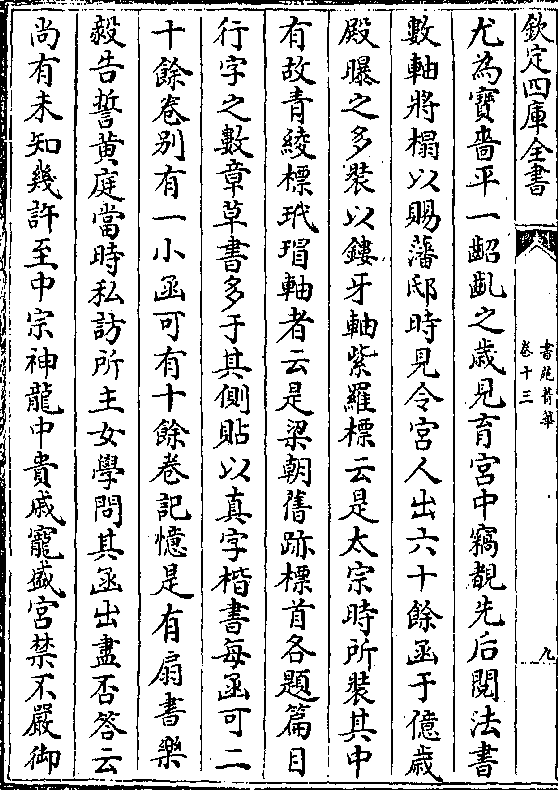 欽定四庫全書
書苑菁華
卷十三
九
尤為寶嗇平一齠齔之歲見育宮中竊覩先后閱法書
數軸將搨以賜藩邸時見令宮人出六十餘函于億歲
殿曝之多裝以鏤牙軸紫羅標云是太宗時所裝其中
有故青綾標玳瑁軸者云是梁朝舊跡標首各題篇目
行字之數章草書多于其側貼以真字楷書每函可二
十餘卷别有一小函可有十餘卷記憶是有扇書樂
毅告誓黄庭當時私訪所主女學問其函出盡否答云
尚有未知幾許至中宗神龍中貴戚寵盛宮禁不嚴御